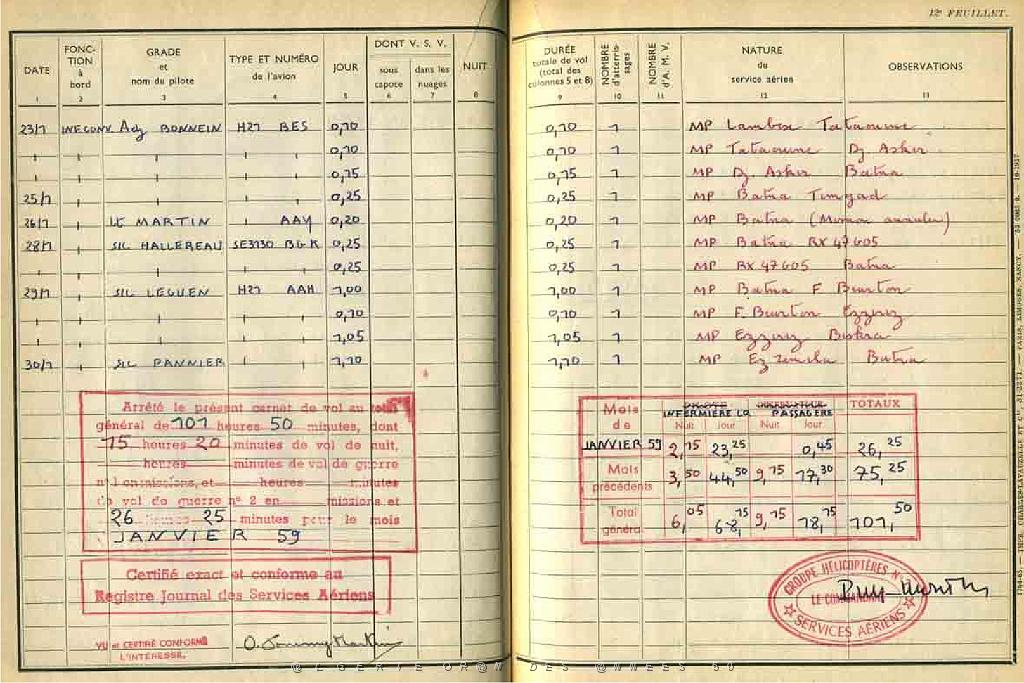 12e FEUILLET.
DATE FONCTION à bord GRADE et nom du pilote TYPE ET NUMÉRO de l'avion JOUR DONT V. S. V. sous capote dans les nuages NUIT DURÉE totale de vol (total des colonnes 5 et 8) NOMBRE d'atterrissages NOMBRE d'A. M. V. NATURE du service aérien OBSERVATIONS
1 2 3 4 5 6 7 8 9 10 11 12 13
23/1 INF.CONV Adj BONNEIN H21 BES 0,10 0,10 1 MP Lambese Tataoume
" " " " 0,10 0,10 1 MP Tataoume Dj Asker
" " " " 0,15 0,15 1 MP Dj Asker Batna
25/1 " " " 0,25 0,25 1 MP Batna Timgad
26/1 Lt MARTIN " AAY 0,20 0,20 1 MP Batna (Mission annulée)
28/1 SLC HALLEREAU SE3130 BGK 0,25 0,25 1 MP Batna RX 47 G05
" " " " 0,25 0,25 1 MP RX 47 G05 Batna
29/1 SLC LEGUEN H21 AAH 1,00 1,00 1 MP Batna F Buirton
" " " 0,10 0,10 1 MP F. Buirton Ezzerez
" " " 1,05 1,05 1 MP Ezzerez Biskra
30/1 SLC PANNIER " " 1,10 1,10 1 MP Batna
Arrêté le présent carnet de vol au total
général de 101 heures 50 minutes, dont
15 heures 20 minutes de vol de nuit,
heures minutes de vol de guerre
n° 1 en missions, et heures minutes
de vol de guerre n° 2 en missions et
26 heures 25 minutes pour le mois
JANVIER 59
Certifié exact et conforme au
Registre Journal des Services Aériens
VU et CERTIFIÉ CONFORME
L'INTÉRESSÉ.
Mois de PILOTE INFERMIÈRE PASSAGÈRE TOTAUX
Nuit Jour Nuit Jour
JANVIER 59 2,15 23,25 0,45 26,25
Mois précédents 3,50 44,50 9,15 17,30 75,25
Total général 6,05 68,15 9,15 18,15 101,50
GROUPE HÉLICOPTÈRES
LE COMMANDANT
SERVICES AÉRIENS
@LGERIE OR@N DES @NNEES 50